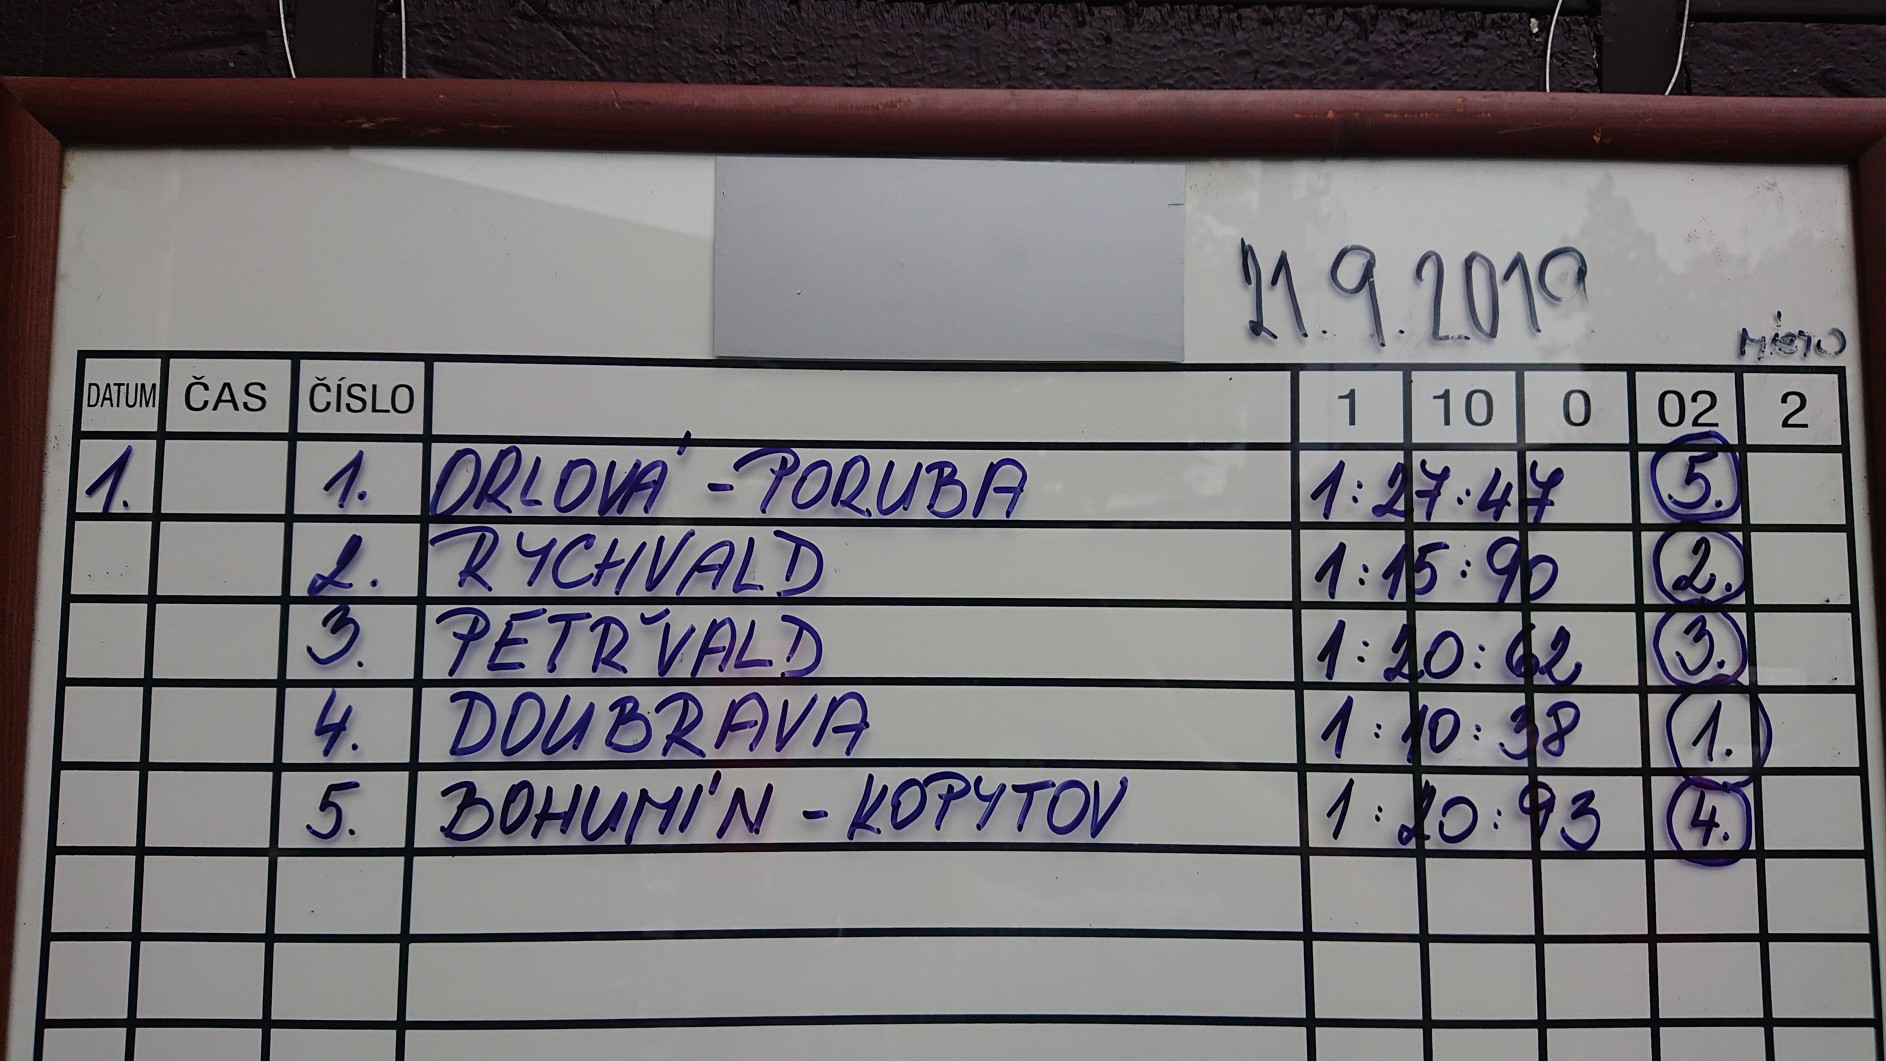 21.9.2019
MÍSTO
DATUM ČAS ČÍSLO 1 10 0 02 2
1. 1. ORLOVÁ - PORUBA 1:27:47 5.
2. RYCHVALD 1:15:90 2.
3. PETŘVALD 1:20:62 3.
4. DOUBRAVA 1:10:38 1.
5. BOHUMÍN - KOPYTOV 1:20:93 4.